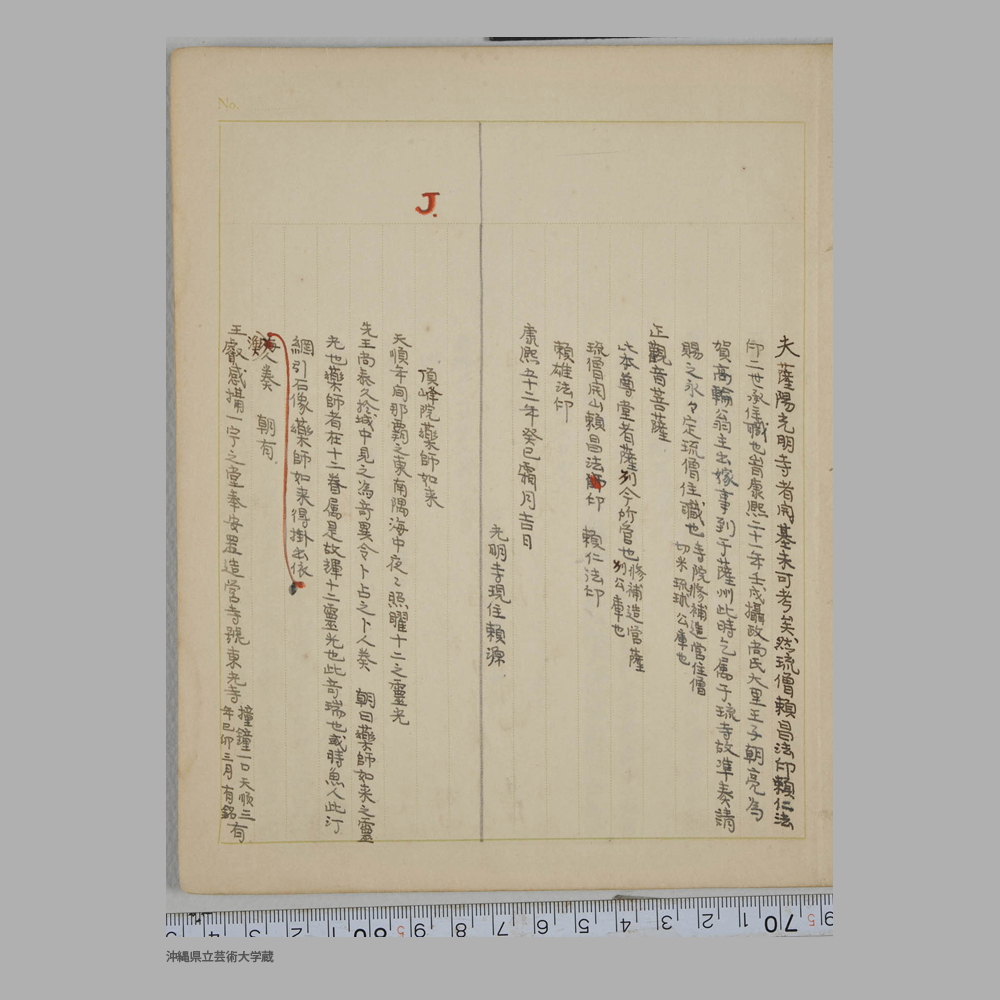 No.
夫薩陽光明寺者開基未可考矣然琉僧頼昌法印頼仁法
印二世承住職也昔康熙二十一年壬戌攝政尚氏大里王子朝亮為
賀高輪翁主出嫁事到于薩州此時乞属于琉寺故準奏請
賜之永々定琉僧住職也 寺院修補造営住僧
切米琉球公庫也
正觀音菩薩
此本尊堂者薩列今所管也 修補造営薩
列公庫也
琉僧開山頼昌法印 頼仁法印
頼雄法印
康熙五十二年癸巳霜月吉日
光明寺現住頼源
J.
頂峰院藥師如来
天順年间那覇之東南隅海中夜々照曜十二之靈光
先王尚泰久於城中見之為竒異令卜占之卜人奏 朝曰藥師如来之靈
光也藥師者在十二眷属是故輝十二靈光也此竒瑞也或時魚人此汀
網引石像藥師如来得掛出依
漁人奏 朝有
王叡感搆一宇之堂奉安置造営寺號東光寺 撞鐘一口天順三
年己卯三月有銘有
70 1 2 3 4 5 6 7 8 9 80 1 2 3 4 5
沖縄県立芸術大学蔵